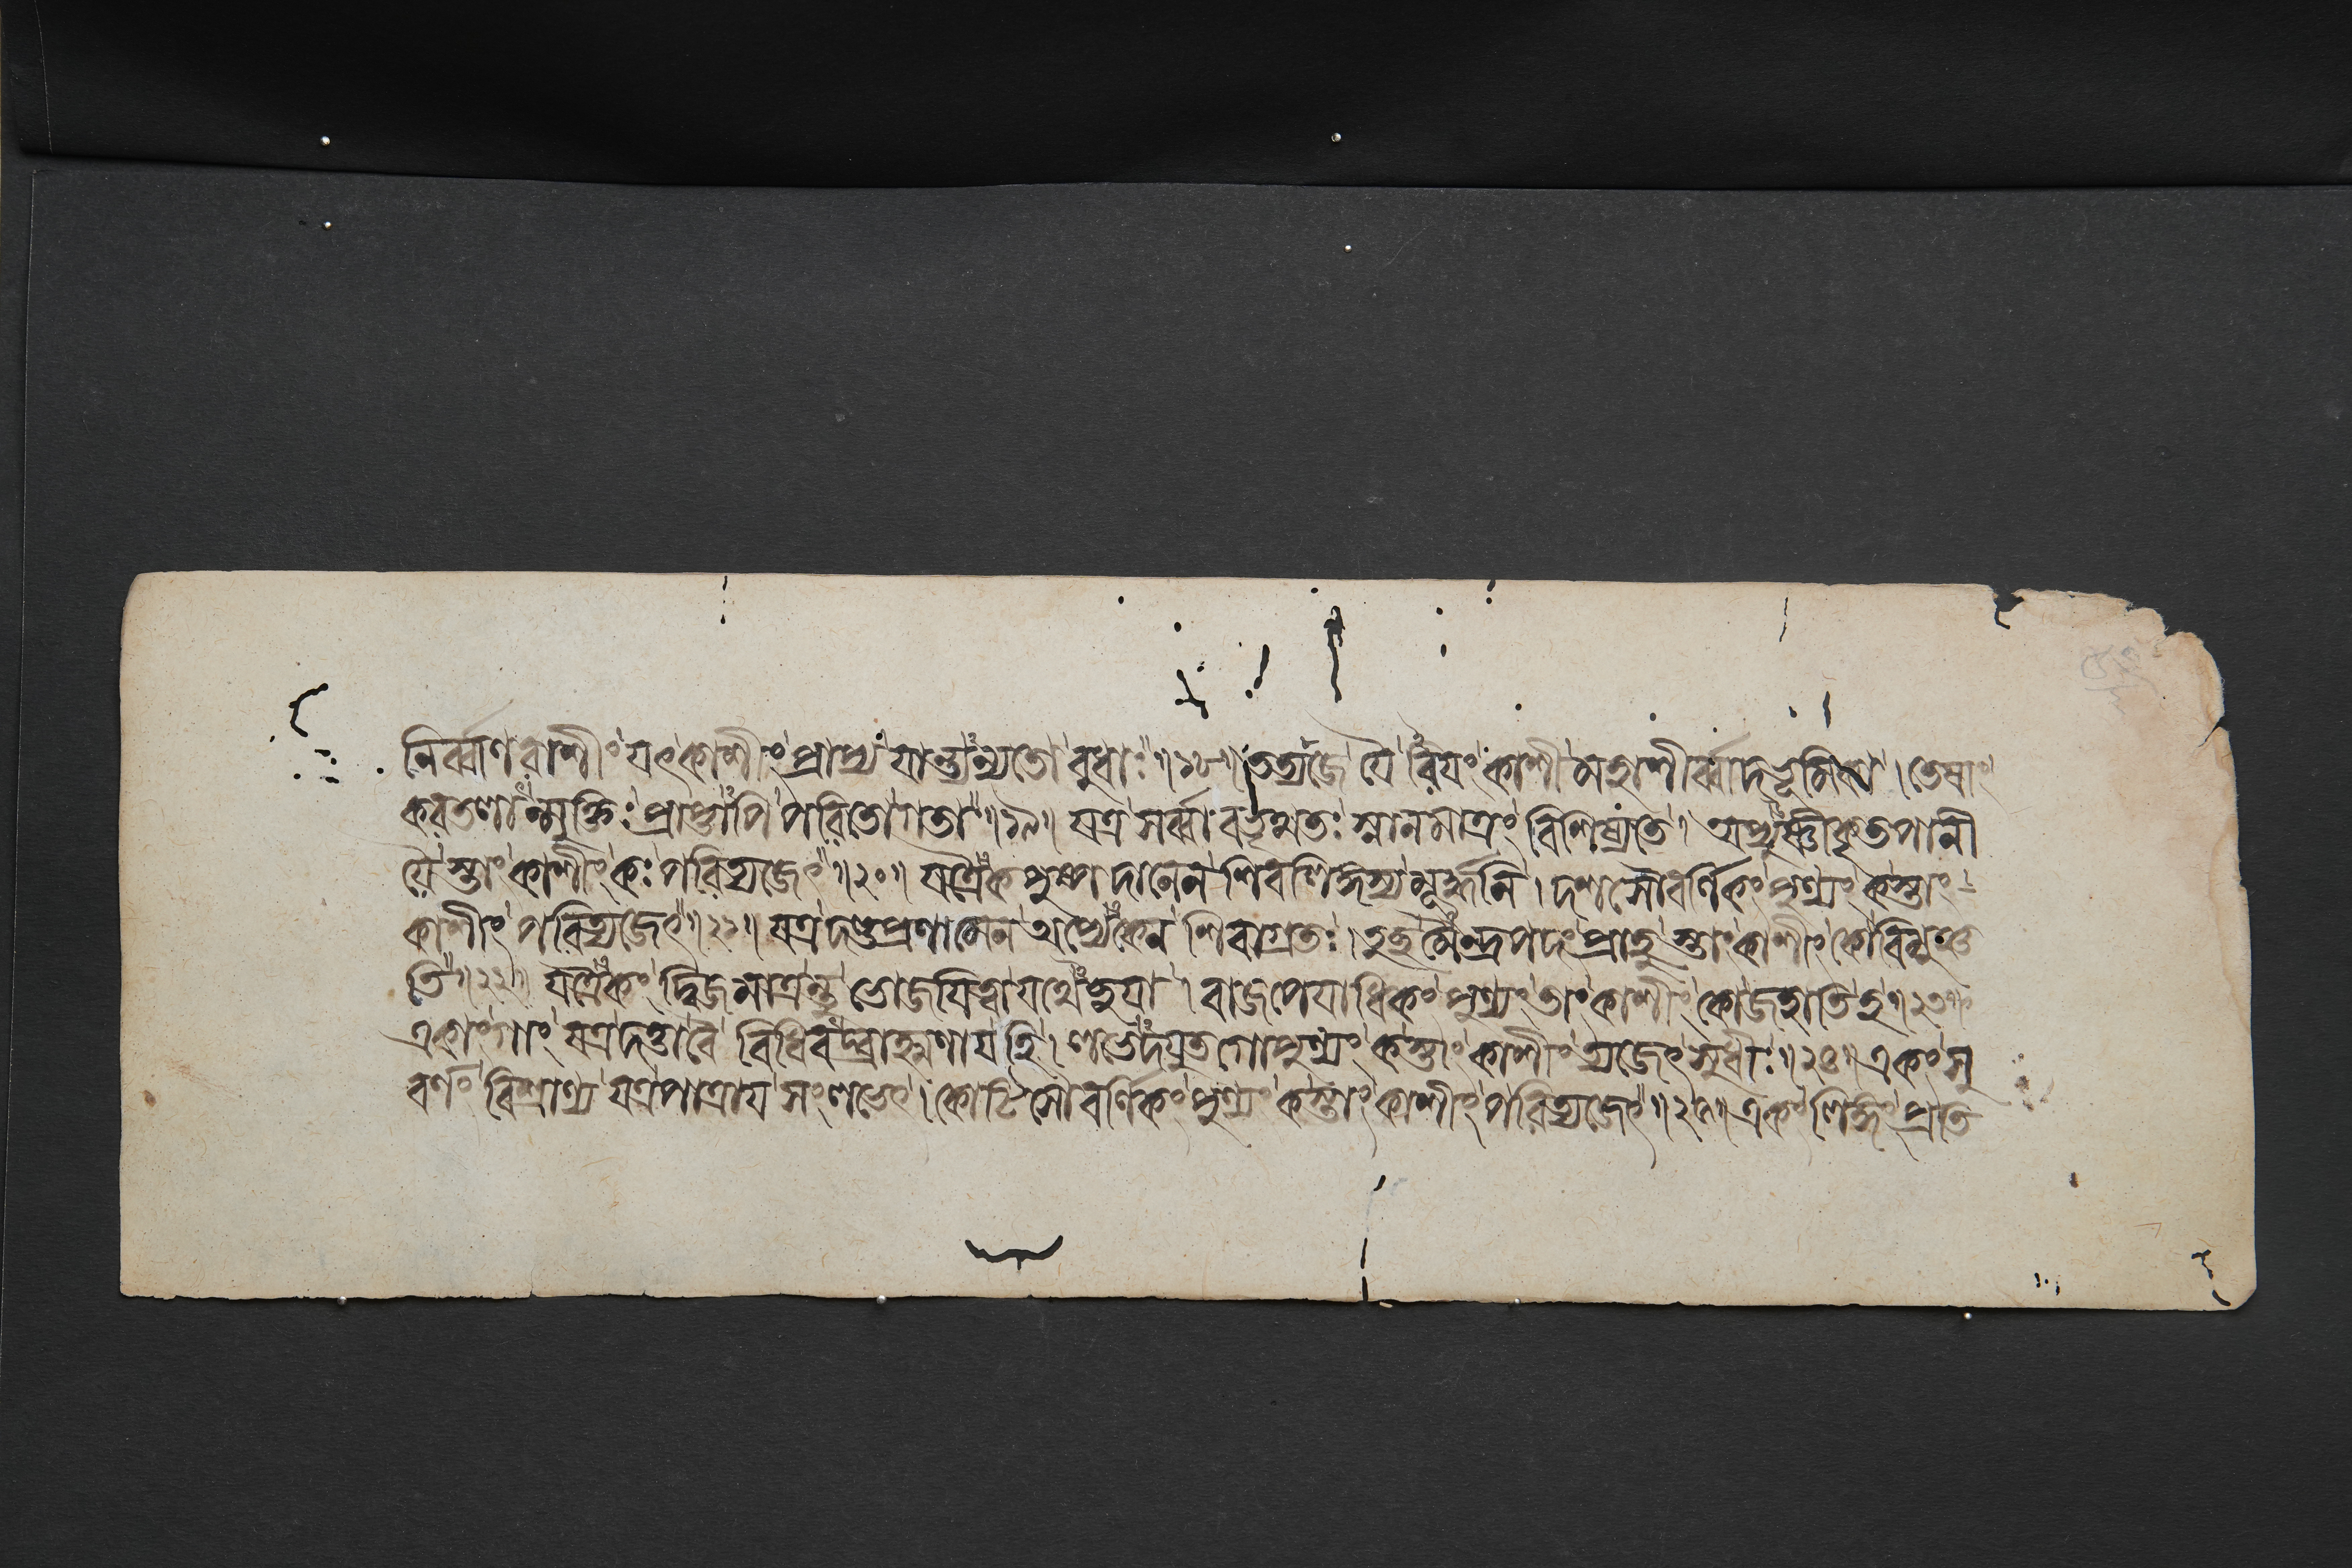 নির্ব্বাণরাশীং যৎকাশীং প্রাপ্য যান্ত্যন্যতো বুধাঃ॥১৮॥ তত্যজে যৈরিয়ং কাশী মহাশীর্ব্বাদভূমিকা। তেষাং
করতলান্মুক্তিঃ প্রাপ্তাপি পরিতো গতা॥১৯॥ যত্র সর্ব্বাবভৃথতঃ স্নানমাত্রং বিশিষ্যতে। অপ্যুষ্ণীকৃতপানী
য়ৈস্তাং কাশীং কঃ পরিত্যজেৎ॥২০॥ যত্রৈকপুষ্পদানেন শিবলিঙ্গস্য মূর্দ্ধনি। দশসৌবর্ণিকং পুণ্যং কস্তাং
কাশীং পরিত্যজেৎ॥২১॥ যত্র দণ্ডপ্রণামেন অপ্যেকেন শিবাগ্রতঃ। তুচ্ছমৈন্দ্রপদং প্রাহুস্তাং কাশীং কো বিমুঞ্চ
তি॥২২॥ যত্রৈকং দ্বিজমাত্রন্তু ভোজয়িত্বা যথেচ্ছয়া। বাজপেয়াধিকং পুণ্যং তাং কাশীং কো জহাতি হ॥২৩॥
একাং গাং যত্র দত্ত্বা বৈ বিধিবদ্ব্রাহ্মণায় হি। লভেদযুতগোপুণ্যং কস্তাং কাশীং ত্যজেৎ সুধীঃ॥২৪॥ একং সু
বর্ণং বিশ্রাণ্য যত্র পাত্রায় সংলভেৎ। কোটিসৌবর্ণিকং পুণ্যং কস্তাং কাশীং পরিত্যজেৎ॥২৫॥ একং লিঙ্গং প্রতি